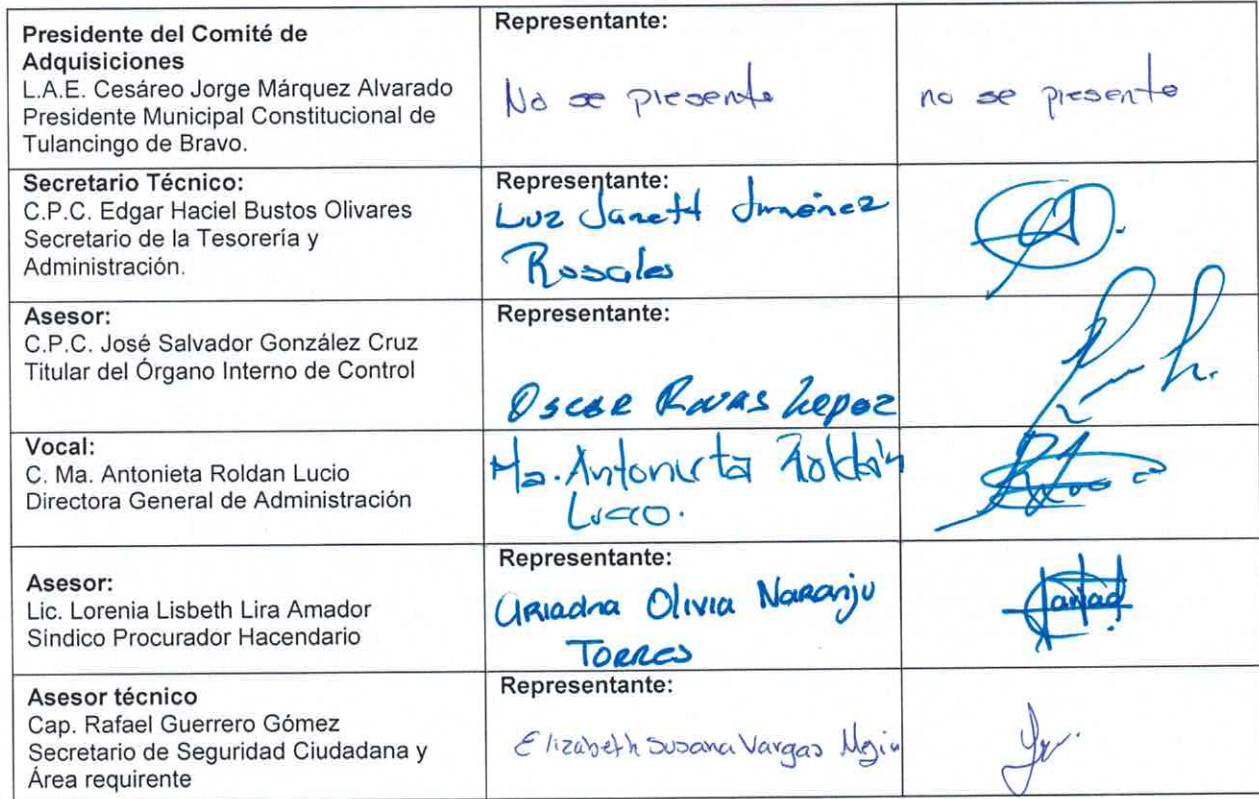 Presidente del Comité de
Adquisiciones
L.A.E. Cesáreo Jorge Márquez Alvarado
Presidente Municipal Constitucional de
Tulancingo de Bravo.
Representante:
No se presento
no se presento
Secretario Técnico:
C.P.C. Edgar Haciel Bustos Olivares
Secretario de la Tesorería y
Administración.
Representante:
Luz Janett Jiménez
Rosales
Asesor:
C.P.C. José Salvador González Cruz
Titular del Órgano Interno de Control
Representante:
Oscar Rivas Lopez
Vocal:
C. Ma. Antonieta Roldan Lucio
Directora General de Administración
Ma. Antonieta Roldán
Lucio.
Asesor:
Lic. Lorenia Lisbeth Lira Amador
Sindico Procurador Hacendario
Representante:
Ariadna Olivia Naranjo
Torres
Asesor técnico
Cap. Rafael Guerrero Gómez
Secretario de Seguridad Ciudadana y
Área requirente
Representante:
Elizabeth Susana Vargas